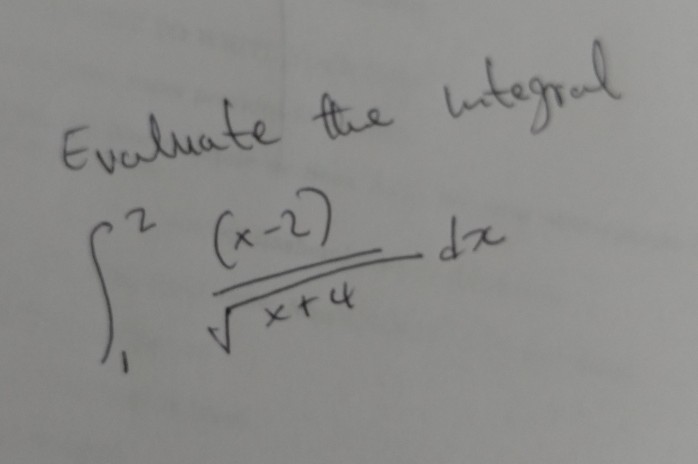 Evaluate the integral
∫₁² (x-2)/√(x+4) dx